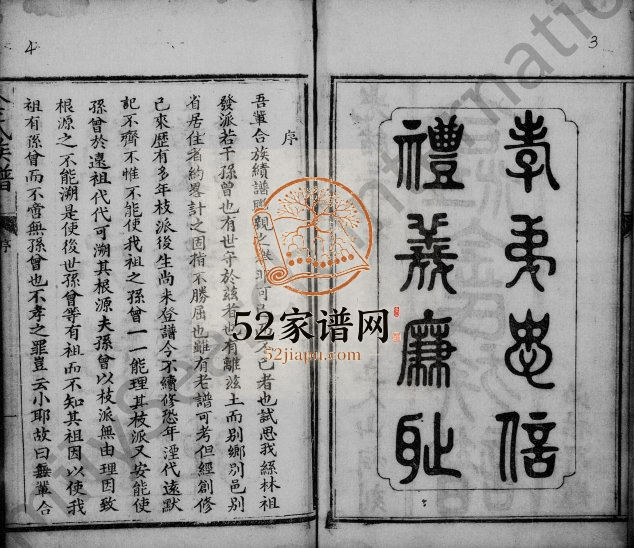 3
孝弟忠信
禮義廉恥
4
序
吾輩合族續譜
發派若干孫曾也有世守於茲者也有離茲土而別鄉別邑別
省居住者約畧計之固指不勝屈也雖有老譜可考但經創修
已來歷有多年枝派後生尚未登譜今不續修恐年湮代遠默
記不齊不惟不能使我祖之孫曾一一能理其枝派又安能使
孫曾於遠祖代代可溯其根源夫孫曾以枝派無由理因致
根源之不能溯是使後世孫曾等有祖而不知其祖因以使我
祖有孫曾而不啻無孫曾也不孝之罪豈云小耶故曰無輩合
氏族譜
序
52家谱网
52jiapu.com